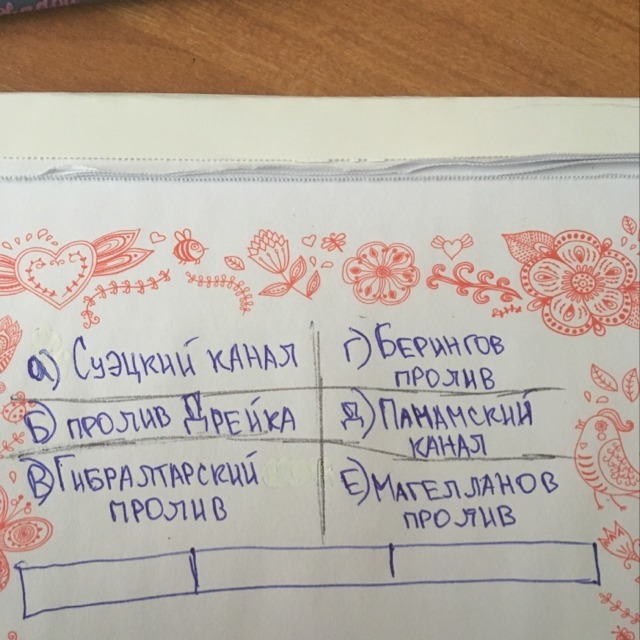 а) Суэцкий канал
Б) пролив Дрейка
В) Гибралтарский
пролив
Г) Берингов
пролив
Д) Панамский
канал
Е) Магелланов
пролив